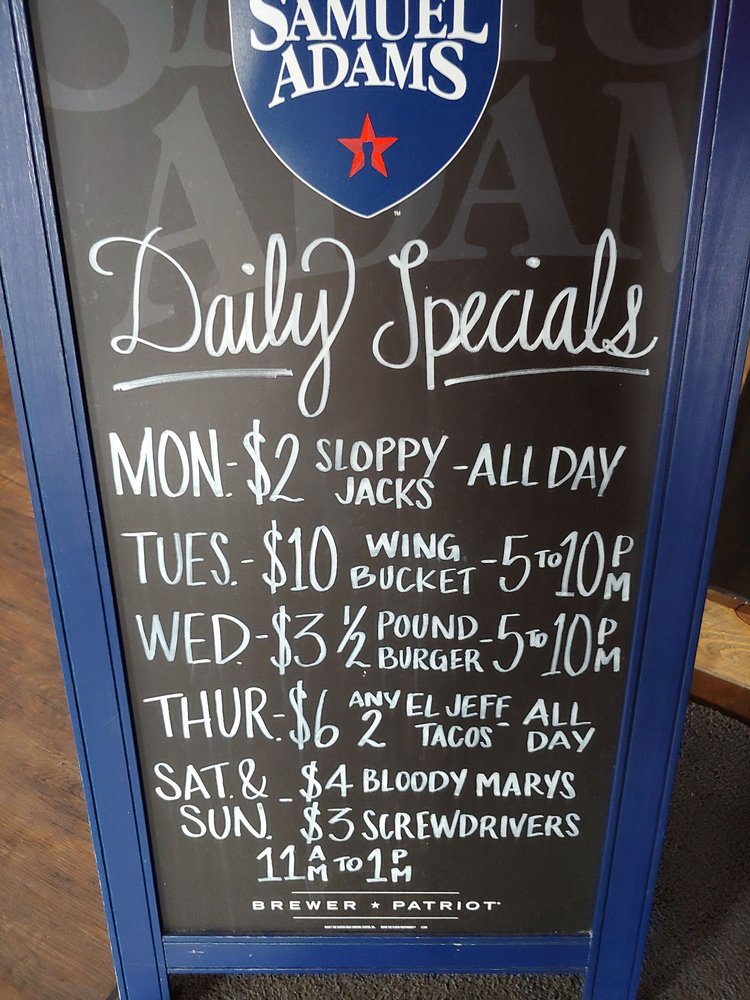 SAMUEL
ADAMS
™
Daily Specials
MON.-$2 SLOPPY JACKS -ALL DAY
TUES.-$10 WING BUCKET -5 TO 10 PM
WED.-$3 ½ POUND BURGER -5 TO 10 PM
THUR.-$6 ANY 2 EL JEFF TACOS - ALL DAY
SAT. & - $4 BLOODY MARYS
SUN. $3 SCREWDRIVERS
11 AM TO 1 PM
BREWER ★ PATRIOT